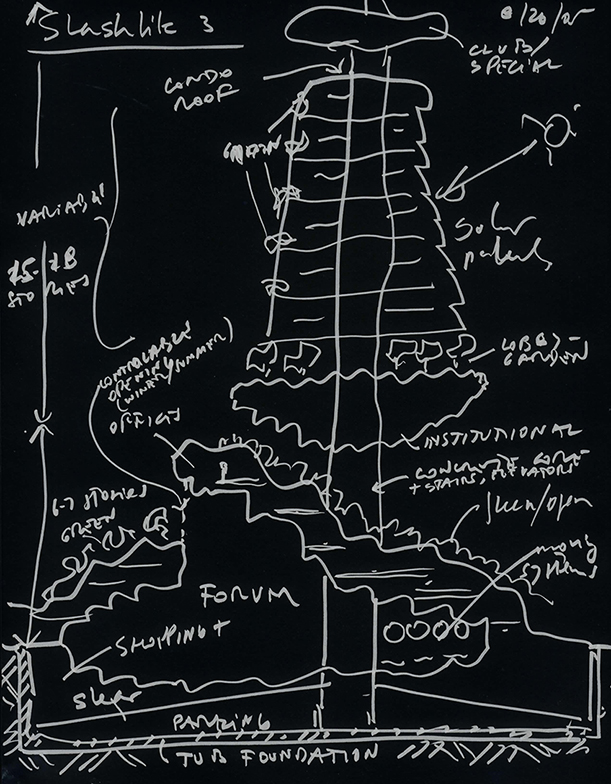 Slashlik 3
CLUB/
SPECIAL
CONDO
ROOF
GARDEN
VARIABLE
15-18
STORIES
Solar
panels
LOBBY-
GARDEN
CONTROLABLE
OPENING
(WINTER/SUMMER)
OFFICES
INSTITUTIONAL
CONCRETE CORE
+ STAIRS, ELEVATORS
6-7 STORIES
GREEN
FORUM
SHOPPING +
PARKING
TUB FOUNDATION